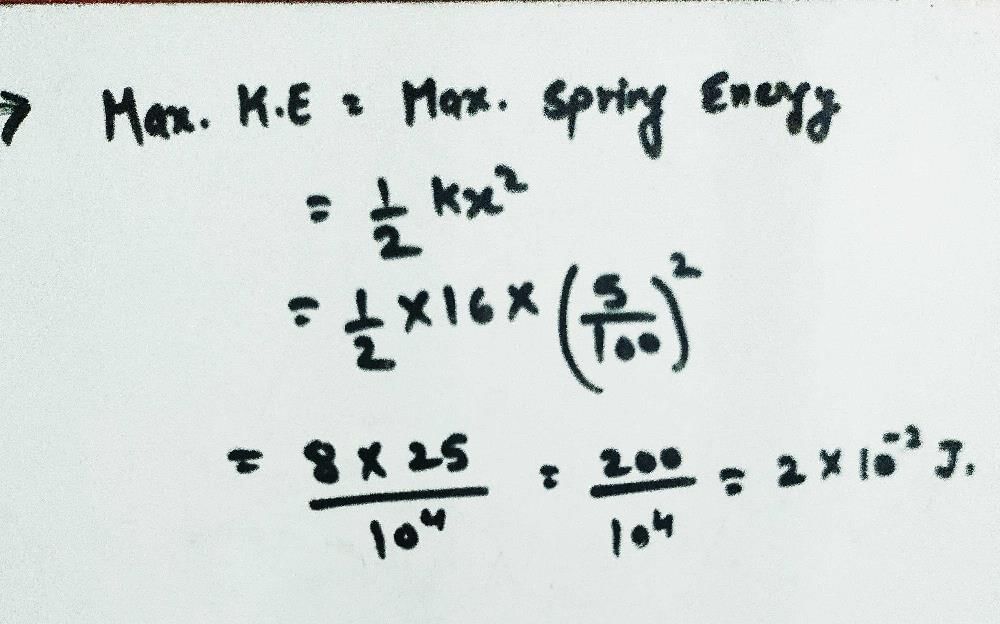 → Max. K.E = Max. Spring Energy
= 1/2 kx²
= 1/2 × 16 × (5/100)²
= 8 × 25/10⁴ = 200/10⁴ = 2 × 10⁻² J.